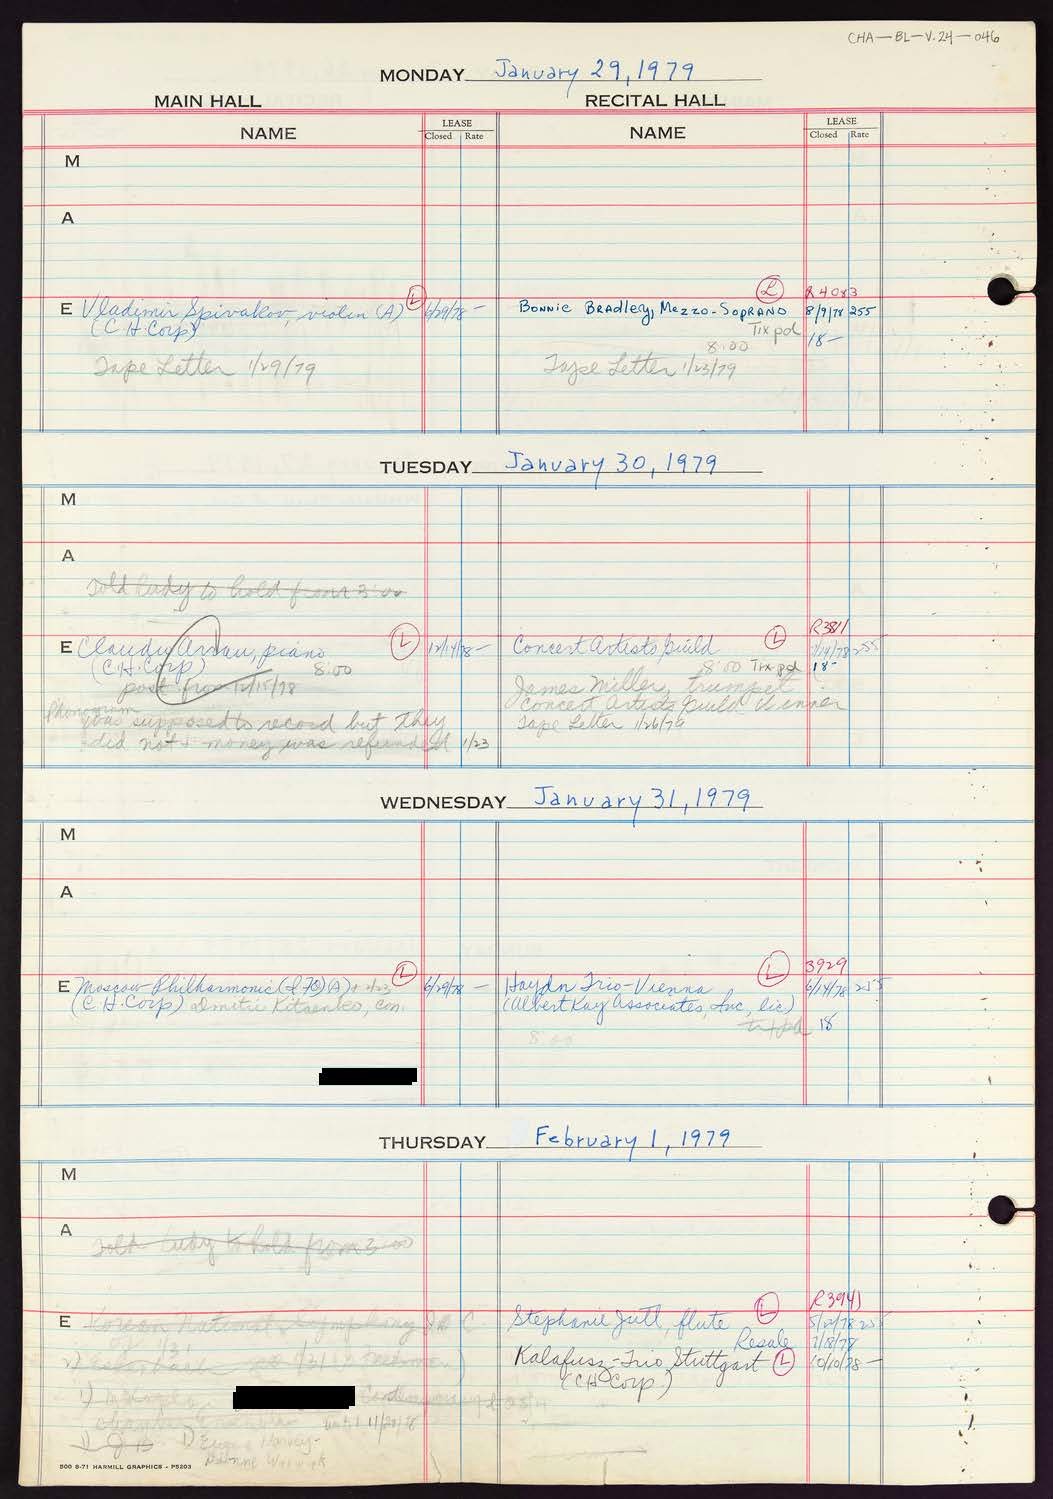 CHA-BL-V.24-046
MONDAY January 29, 1979
MAIN HALL RECITAL HALL
NAME LEASE Closed Rate NAME LEASE Closed Rate
M
A
L R4083
E Vladimir Spivakov, violin (A) L 6/29/78 - Bonnie Bradley, Mezzo-Soprano 8/9/78 255
(C H Corp) Tix pd 18-
8:00
Tape Letter 1/29/79 Tape Letter 1/23/79
TUESDAY January 30, 1979
M
A
Told Lady to hold from 3:00
R3811
E Claudio Arrau, piano L 12/14/78 - Concert Artists Guild L 7/14/78 255
(C.H. Corp) 8:00 8:00 Tix pd 18-
post from 12/15/78 James Miller, trumpet
Phonogram Concert Artists Guild Winner
was supposed to record but they Tape Letter 1/26/79
did not & money was refunded 1/23
WEDNESDAY January 31, 1979
M
A
L L 3929
E Moscow Philharmonic (A) 6/29/78 - Haydn Trio-Vienna 6/14/78 255
(C.H. Corp) Dmitri Kitaenko, con. (Albert Kay Associates, Inc, lic)
tix pd 18
8:00
THURSDAY February 1, 1979
M
A
Told Lady to hold from 3:00
R3941
E Korean National Symphony Stephanie Jutt, flute L 5/22/78 255
Resale 7/18/78
Kalafusz-Trio Stuttgart L 10/10/78 -
(CH Corp)
2)
1)
until 11/20/78
1)
Dionne Warwick
500 8-71 HARMILL GRAPHICS - P5203